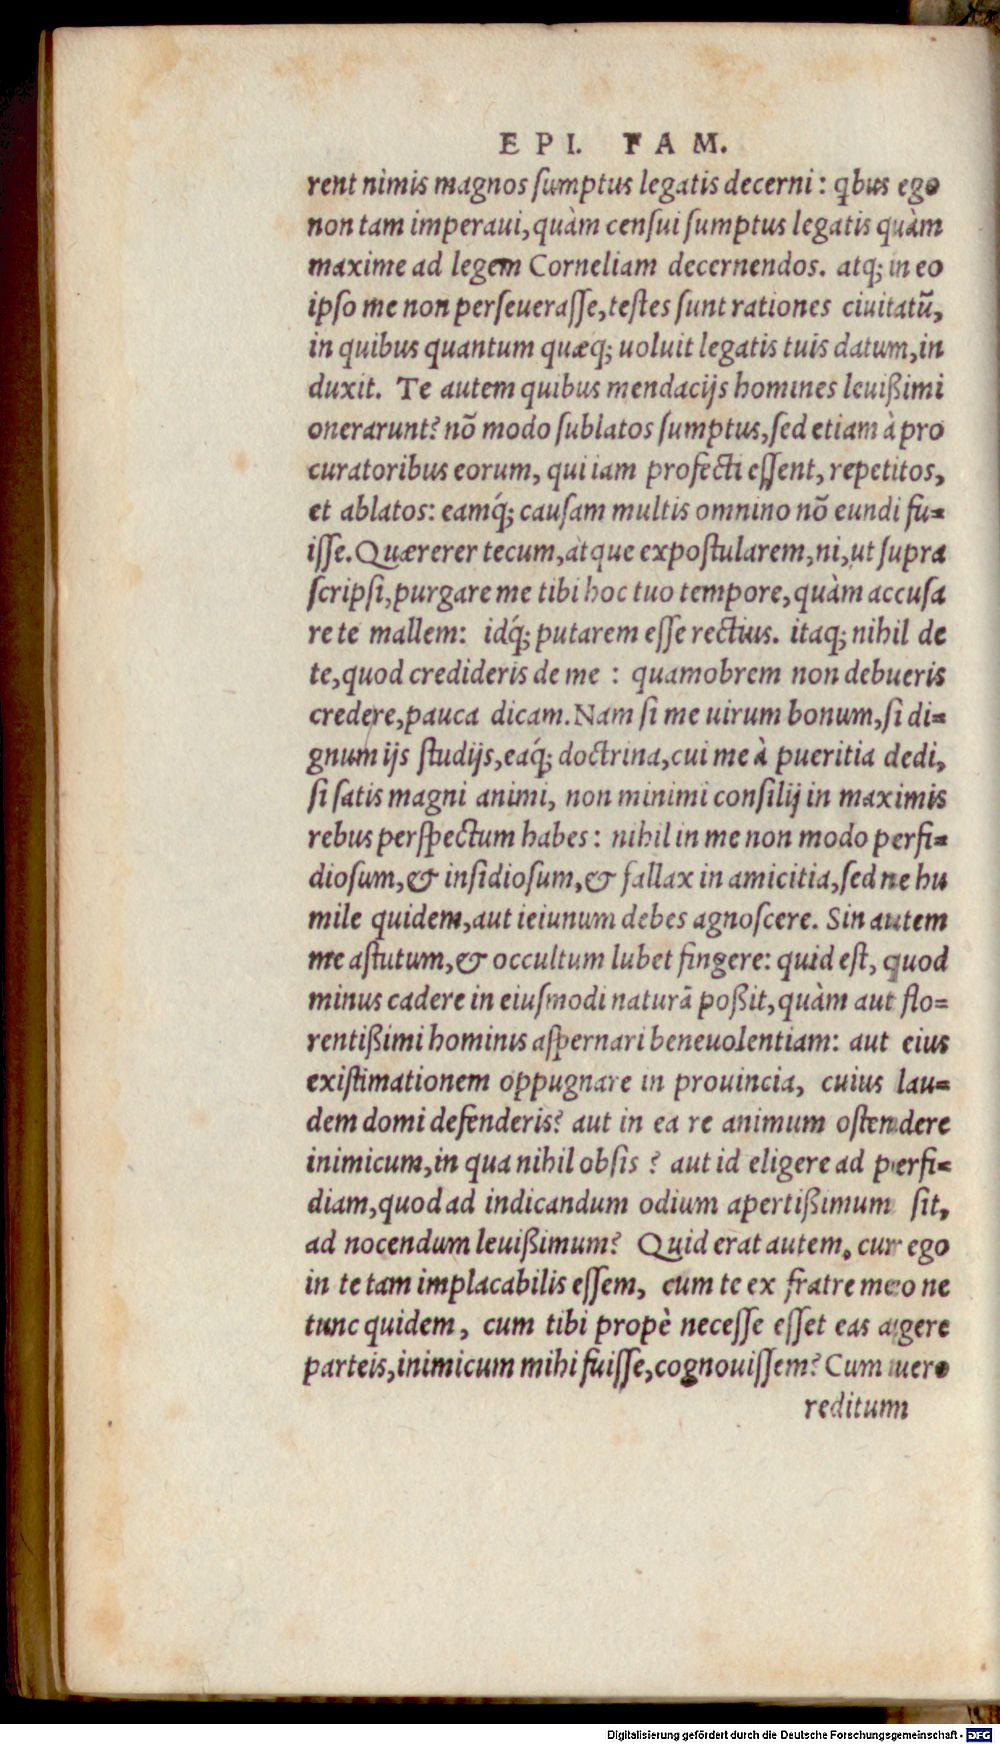 EPI. FAM.
rent nimis magnos ſumptus legatis decerni: qbus ego
non tam imperaui, quàm cenſui ſumptus legatis quàm
maxime ad legem Corneliam decernendos. atq; in eo
ipſo me non perſeueraſſe, teſtes ſunt rationes ciuitatũ,
in quibus quantum quæq; uoluit legatis tuis datum, in
duxit. Te autem quibus mendacijs homines leuißimi
onerarunt? nõ modo ſublatos ſumptus, ſed etiam à pro
curatoribus eorum, qui iam profecti eſſent, repetitos,
et ablatos: eamq́; cauſam multis omnino nõ eundi fu=
iſſe. Quærerer tecum, atque expoſtularem, ni, ut ſupra
ſcripſi, purgare me tibi hoc tuo tempore, quàm accuſa
re te mallem: idq́; putarem eſſe rectius. itaq; nihil de
te, quod credideris de me : quamobrem non debueris
credere, pauca dicam. Nam ſi me uirum bonum, ſi di=
gnum ijs ſtudijs, eaq́; doctrina, cui me à pueritia dedi,
ſi ſatis magni animi, non minimi conſilij in maximis
rebus perſpectum habes: nihil in me non modo perfi=
dioſum, & inſidioſum, & fallax in amicitia, ſed ne hu
mile quidem, aut ieiunum debes agnoſcere. Sin autem
me aſtutum, & occultum lubet fingere: quid eſt, quod
minus cadere in eiuſmodi naturã poßit, quàm aut flo=
rentißimi hominis aſpernari beneuolentiam: aut eius
exiſtimationem oppugnare in prouincia, cuius lau=
dem domi defenderis? aut in ea re animum oſtendere
inimicum, in qua nihil obſis ? aut id eligere ad perfi=
diam, quod ad indicandum odium apertißimum ſit,
ad nocendum leuißimum? Quid erat autem, cur ego
in te tam implacabilis eſſem, cum te ex fratre meo ne
tunc quidem, cum tibi propè neceſſe eſſet eas agere
parteis, inimicum mihi fuiſſe, cognouiſſem? Cum uero
reditum
Digitalisierung gefördert durch die Deutsche Forschungsgemeinschaft - DFG